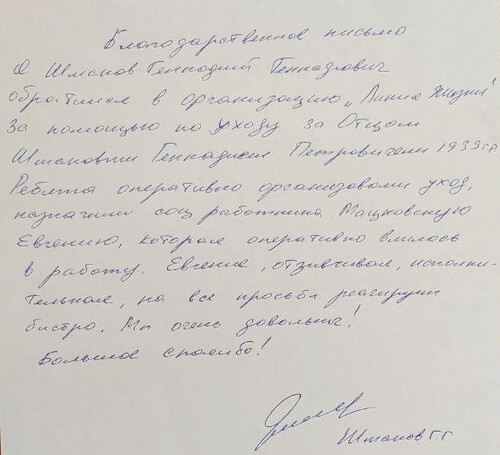 Благодарственное письмо
Я Шманов Геннадий Геннадьевич
обратился в организацию „Линия Жизни"
За помощью по уходу за Отцом
Шмановым Геннадием Петровичем 1939 г.р
Ребята оперативно организовали уход,
назначили соц работника Мацковскую
Евгению, которая оперативно влилась
в работу. Евгения, отзывчивая, исполни-
тельная, на все просьбы реагирует
быстро. Мы очень довольны!
Большое спасибо!
Шманов Г.Г